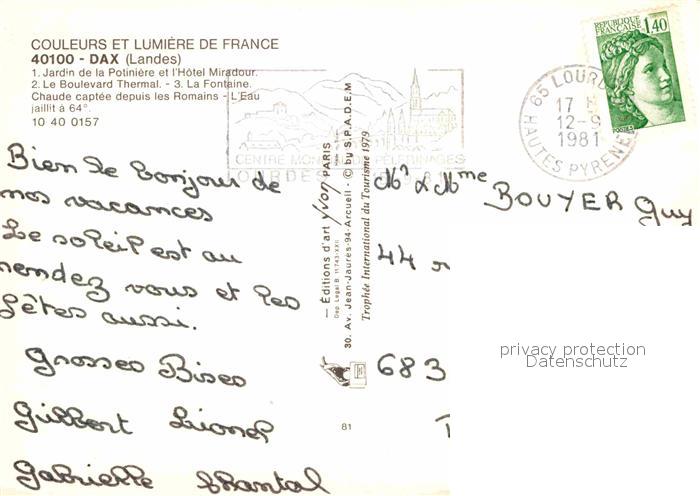 COULEURS ET LUMIÈRE DE FRANCE
40100 - DAX (Landes)
1. Jardin de la Potinière et l'Hôtel Miradour.
2. Le Boulevard Thermal. - 3. La Fontaine.
Chaude captée depuis les Romains - L'Eau
jaillit à 64°.
10 40 0157
Bien le bonjour de
nos vacances
Le soleil est au
rendez vous et les
fêtes aussi.
Grosses Bises
Guilbert Lionel
Gabrielle Chantal
— Éditions d'art Yvon PARIS
Dep. Legal B 11743-XXII
30. Av. Jean-Jaurès-94-Arcueil - © by S.P.A.D.E.M
Trophée International du Tourisme 1979
81
CENTRE MONDIAL DE PÈLERINAGES
LOURDES
RÉPUBLIQUE
FRANÇAISE
1,40
POSTES
65 LOURDES
17 H
12-9
1981
HAUTES PYRENEES
Mr & Mme BOUYER Guy
44
683
privacy protection
Datenschutz